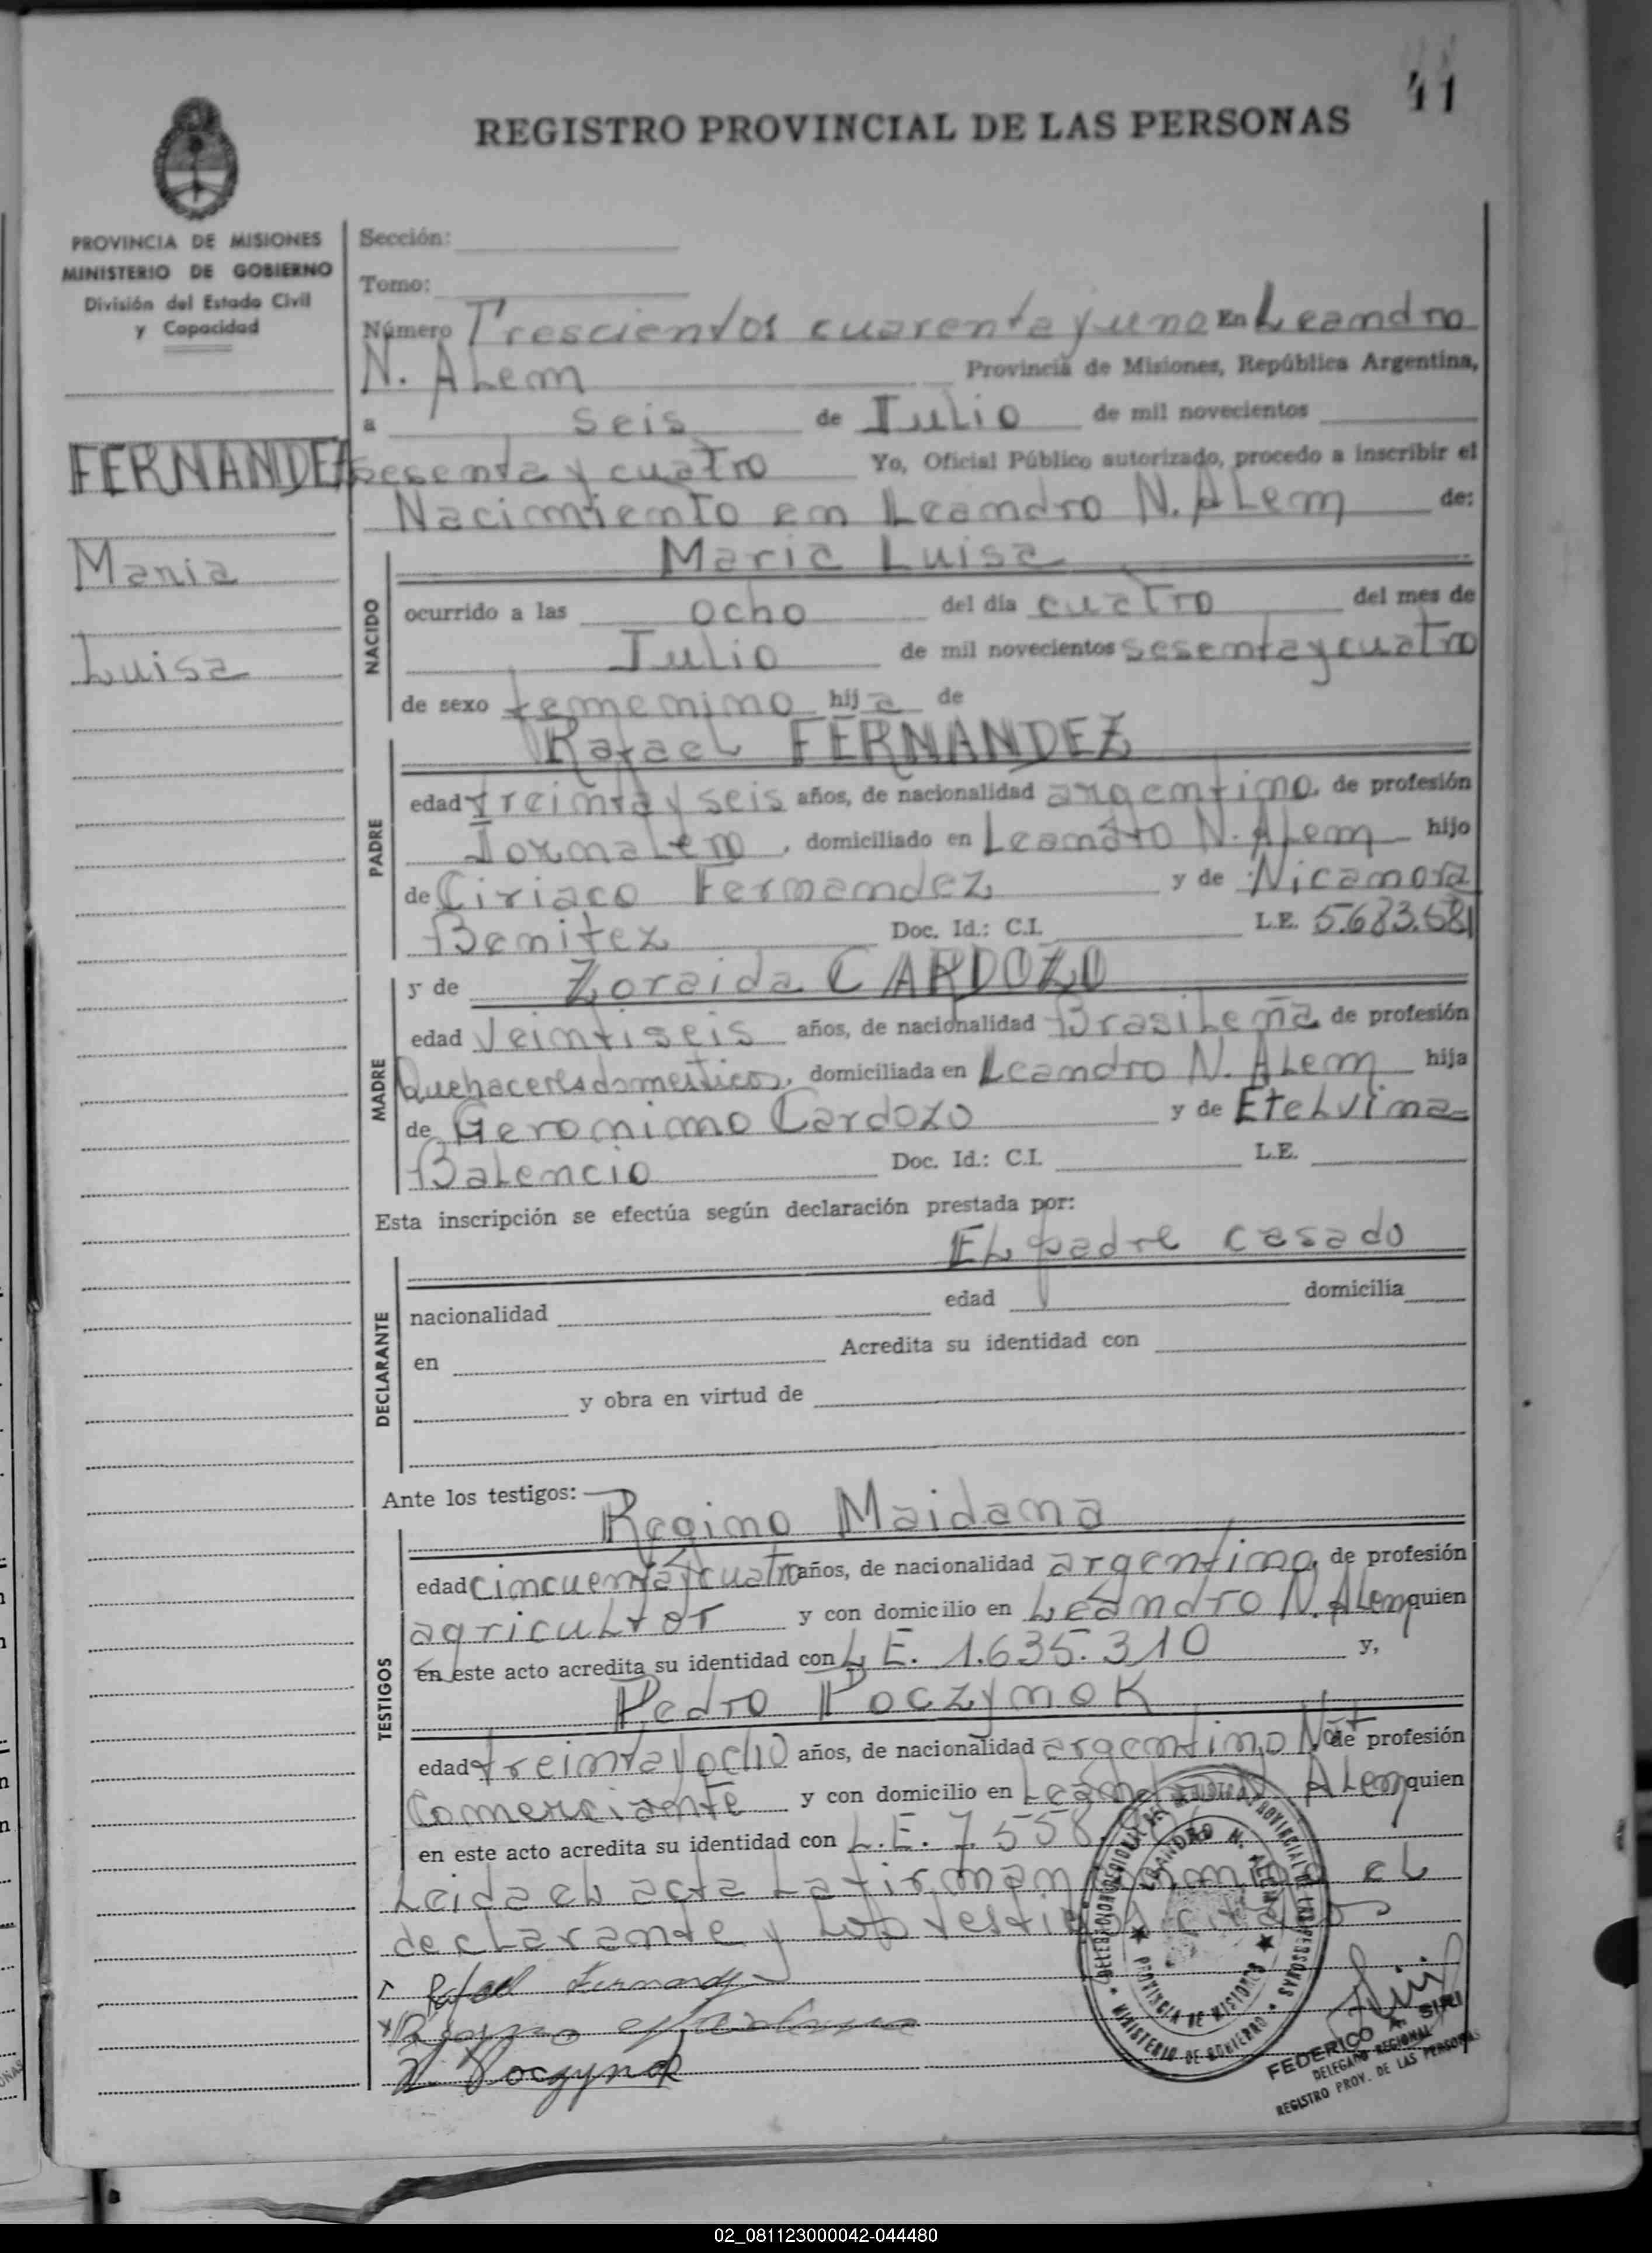 41
REGISTRO PROVINCIAL DE LAS PERSONAS
PROVINCIA DE MISIONES
MINISTERIO DE GOBIERNO
División del Estado Civil
y Capacidad
FERNANDEZ
Maria
Luisa
Sección:
Tomo:
Número Trescientos cuarenta y uno En Leandro
N. ALem Provincia de Misiones, República Argentina,
a seis de Julio de mil novecientos
sesenta y cuatro Yo, Oficial Público autorizado, procedo a inscribir el
Nacimiento en Leandro N. ALem de:
NACIDO
Maria Luisa
ocurrido a las ocho del día cuatro del mes de
Julio de mil novecientos sesenta y cuatro
de sexo femenino hija de
PADRE
Rafael FERNANDEZ
edad treinta y seis años, de nacionalidad argentino, de profesión
Jornalero, domiciliado en Leandro N. ALem hijo
de Ciriaco Fernandez y de Nicanora
Benitez Doc. Id.: C.I. L.E. 5.683.581
MADRE
y de Zoraida CARDOZO
edad Veintiseis años, de nacionalidad Brasileña de profesión
Quehaceres domesticos, domiciliada en Leandro N. ALem hija
de Geronimo Cardozo y de Etelvina
Balencio Doc. Id.: C.I. L.E.
Esta inscripción se efectúa según declaración prestada por:
DECLARANTE
El padre casado
nacionalidad edad domicilia
en Acredita su identidad con
y obra en virtud de
Ante los testigos:
TESTIGOS
Regino Maidana
edad cincuenta y cuatro años, de nacionalidad argentino, de profesión
agricultor y con domicilio en Leandro N. ALem quien
en este acto acredita su identidad con L.E. 1.635.310 y,
Pedro Poczynok
edad treinta y ocho años, de nacionalidad argentino Nat de profesión
Comerciante y con domicilio en Leandro N. ALem quien
en este acto acredita su identidad con L.E. 7.558.
Leida el acta la firman conmigo el
declarante y los testigos citados
Rafael Fernandez
Maidana
P. Poczynok
DELEGACION REGIONAL DEL REGISTRO PROVINCIAL DE LAS PERSONAS
LEANDRO N. ALEM
PROVINCIA DE MISIONES
MINISTERIO DE GOBIERNO
FEDERICO A. SIRI
DELEGADO REGIONAL
REGISTRO PROV. DE LAS PERSONAS
02_081123000042-044480